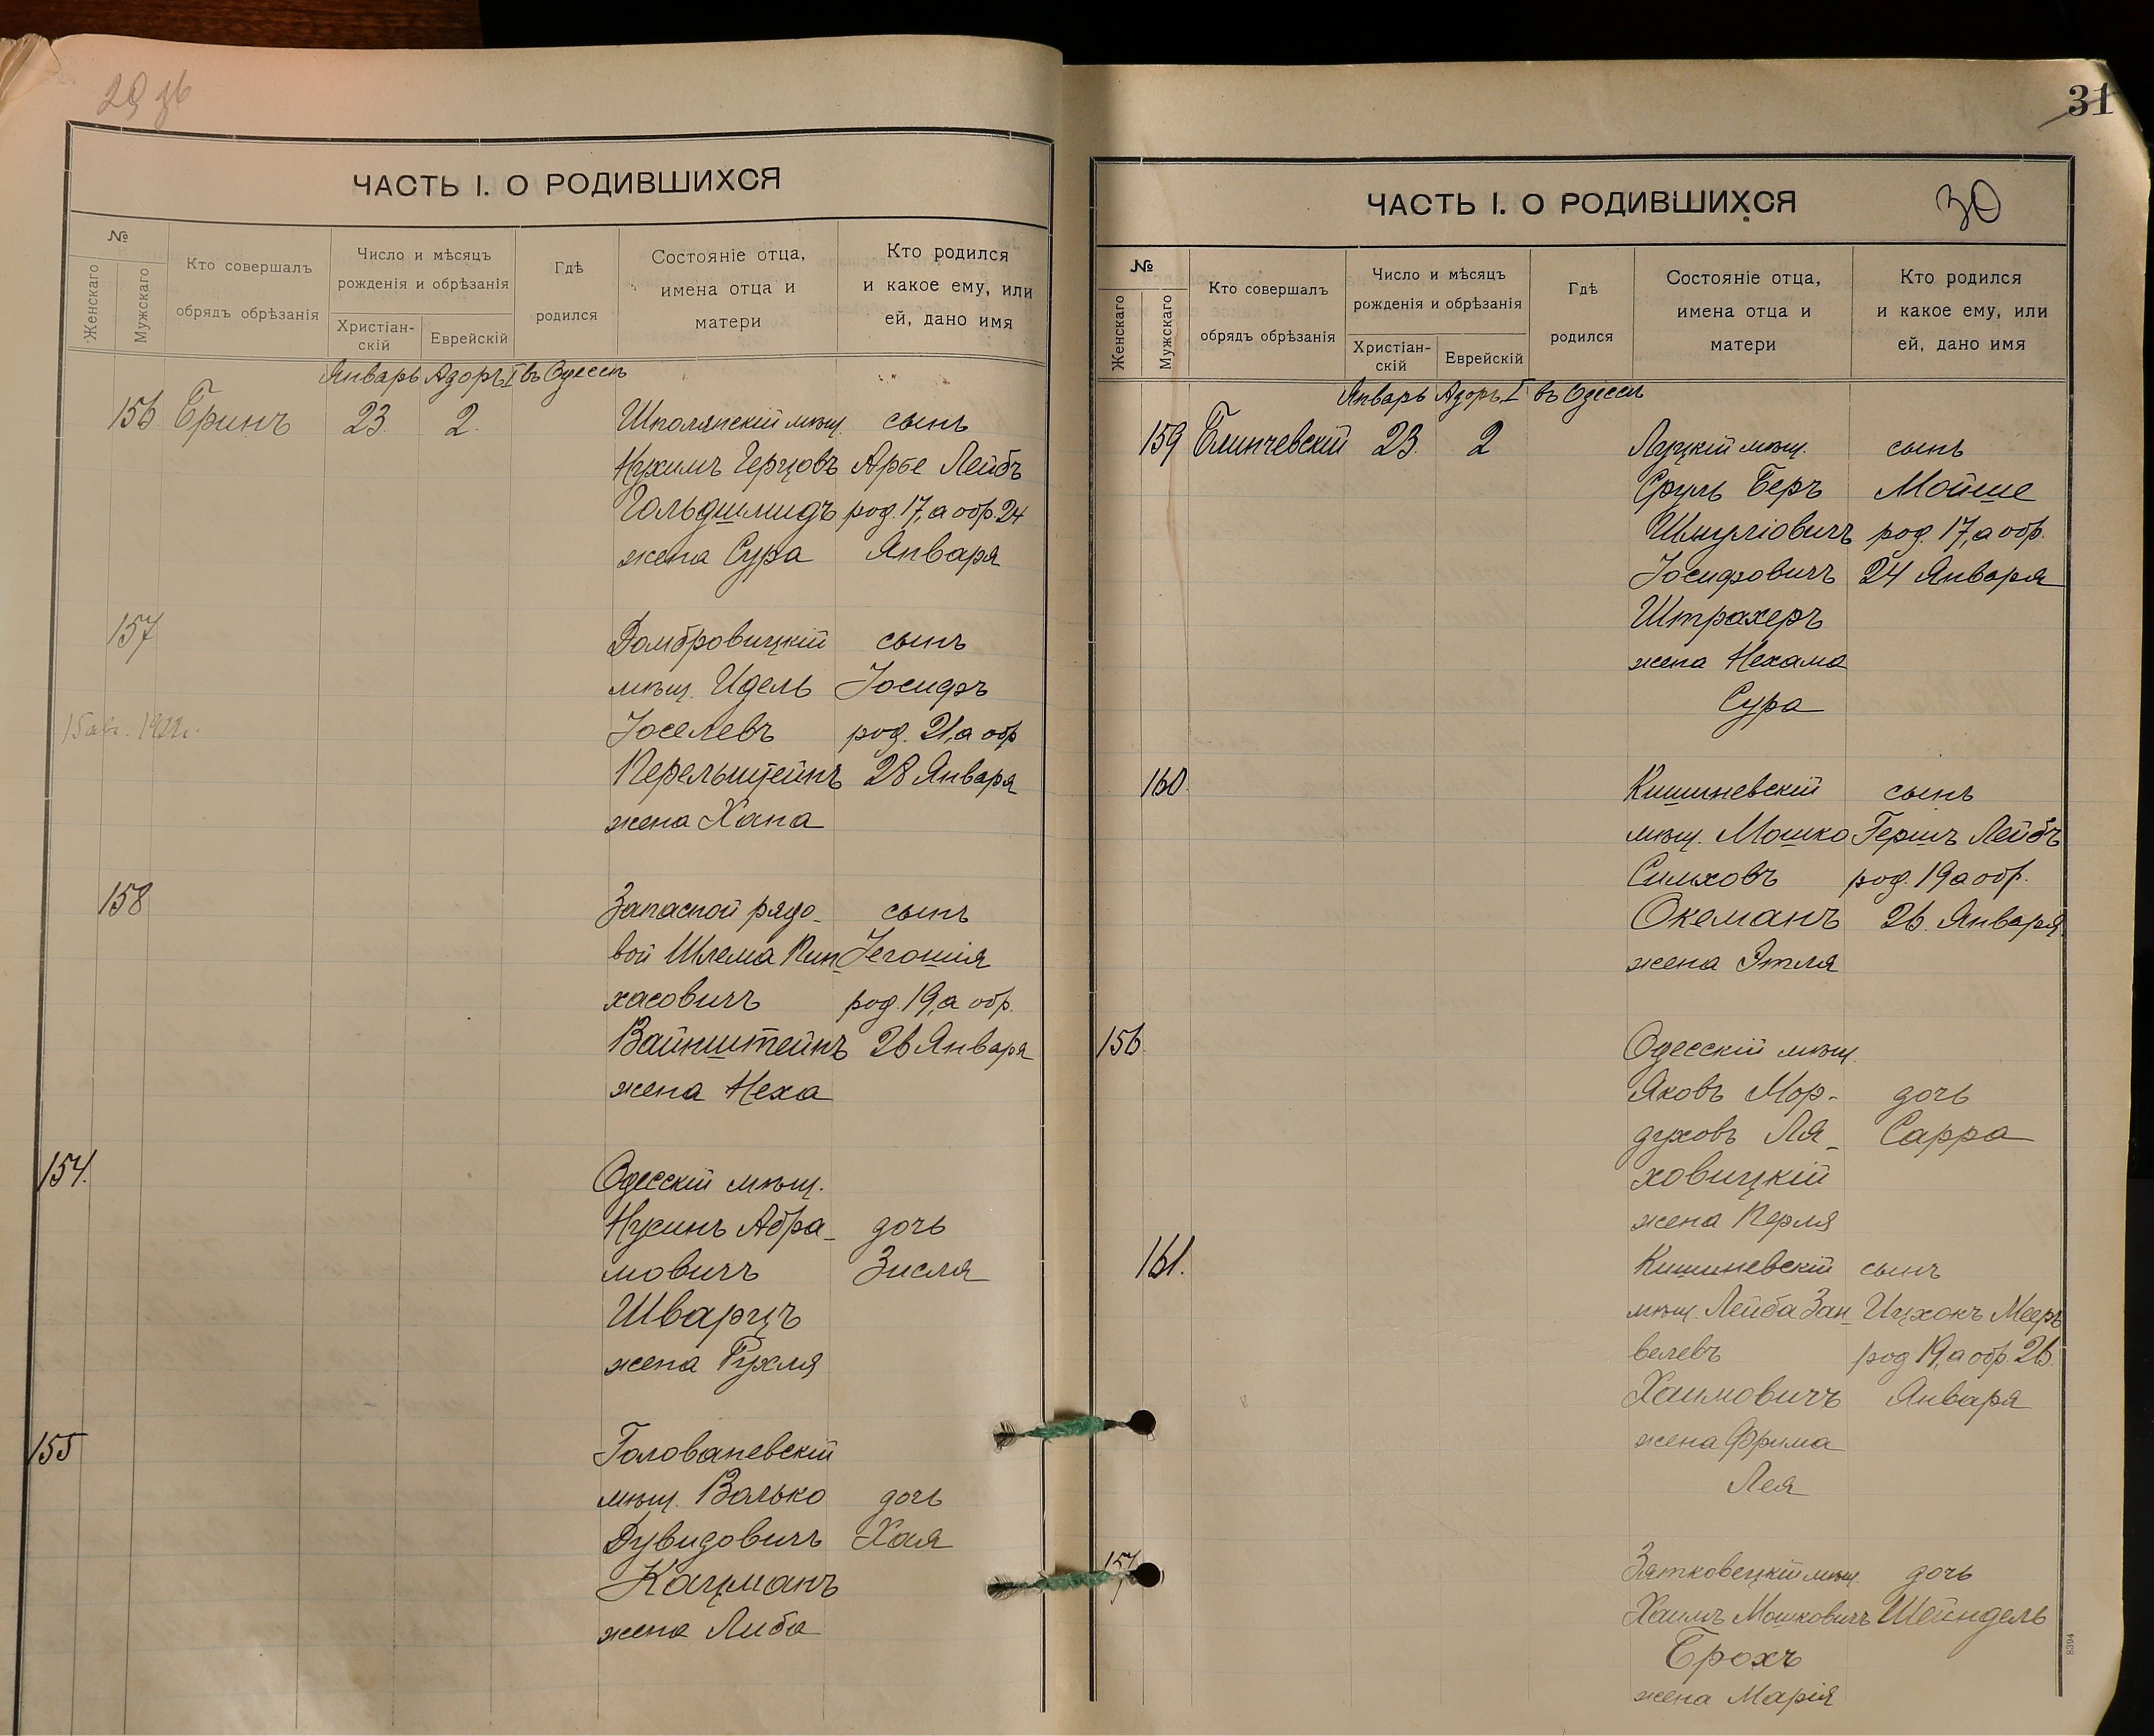 ЧАСТЬ I. О РОДИВШИХСЯ
№
Женскаго
Мужскаго
Кто совершалъ
обрядъ обрѣзанія
Число и мѣсяцъ
рожденія и обрѣзанія
Христіан-
скій
Еврейскій
Гдѣ
родился
Состояніе отца,
имена отца и
матери
Кто родился
и какое ему, или
ей, дано имя
Январь Адоръ I въ Одессѣ
156 Бринъ 23. 2. Шполянскій мѣщ. сынъ
Нухимъ Герцовъ Арбе Лейбъ
Гольдшмидъ род. 17, а обр. 24
жена Сура Января
157 Домбровицкій сынъ
мѣщ. Идель Іосифъ
Іоселевъ род. 21, а обр
Перельштейнъ 28 Января
жена Хана
158 Запасной рядо-
вой Шлема Пин- сынъ
хасовичъ Іегошія
род. 19, а обр.
Вайнштейнъ 26 Января
жена Неха
154. Одесскій мѣщ.
Нусинъ Абра- дочь
мовичъ Зисля
Шварцъ
жена Рухля
155 Голованевскій
мѣщ. Волько дочь
Дувидовичъ Хая
Кацманъ
жена Либа
31
ЧАСТЬ I. О РОДИВШИХСЯ 30
№
Женскаго
Мужскаго
Кто совершалъ
обрядъ обрѣзанія
Число и мѣсяцъ
рожденія и обрѣзанія
Христіан-
скій
Еврейскій
Гдѣ
родился
Состояніе отца,
имена отца и
матери
Кто родился
и какое ему, или
ей, дано имя
Январь Адоръ I въ Одессѣ
159 Блинчевскій 23. 2 Луцкій мѣщ. сынъ
Сруль Беръ Мойше
Шмуліовичъ род. 17, а обр.
Іосифовичъ 24 Января
Штрахеръ
жена Нехама
Сура
160. Кишиневскій сынъ
мѣщ. Мошко Гершъ Лейбъ
Симховъ род. 19 а обр.
Океманъ 26 Января
жена Этля
156. Одесскій мѣщ.
Яковъ Мор- дочь
духовъ Ля- Сарра
ховицкій
жена Перля
161. Кишиневскій сынъ
мѣщ. Лейба Зан- Ицхокъ Мееръ
велевъ род 19, а обр. 26
Хаимовичъ Января
жена Фрима
Лея
157 Зятковецкій мѣщ. дочь
Хаимъ Мошковичъ Шейндель
Брохъ
жена Марія
8394